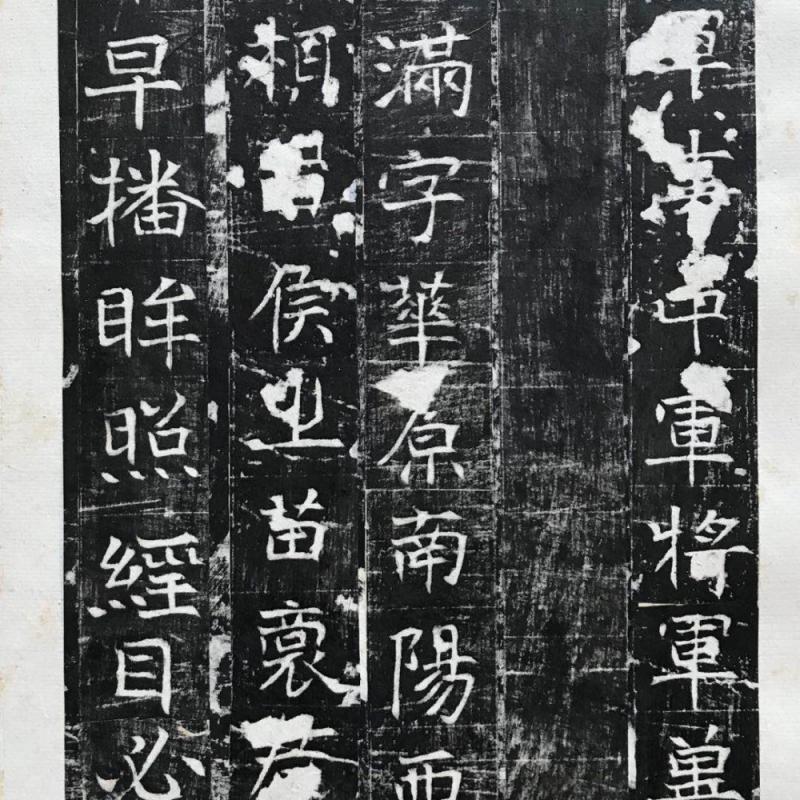 事中軍將軍
滿字華原南陽西
侯之苗裔
早播眸照經目必